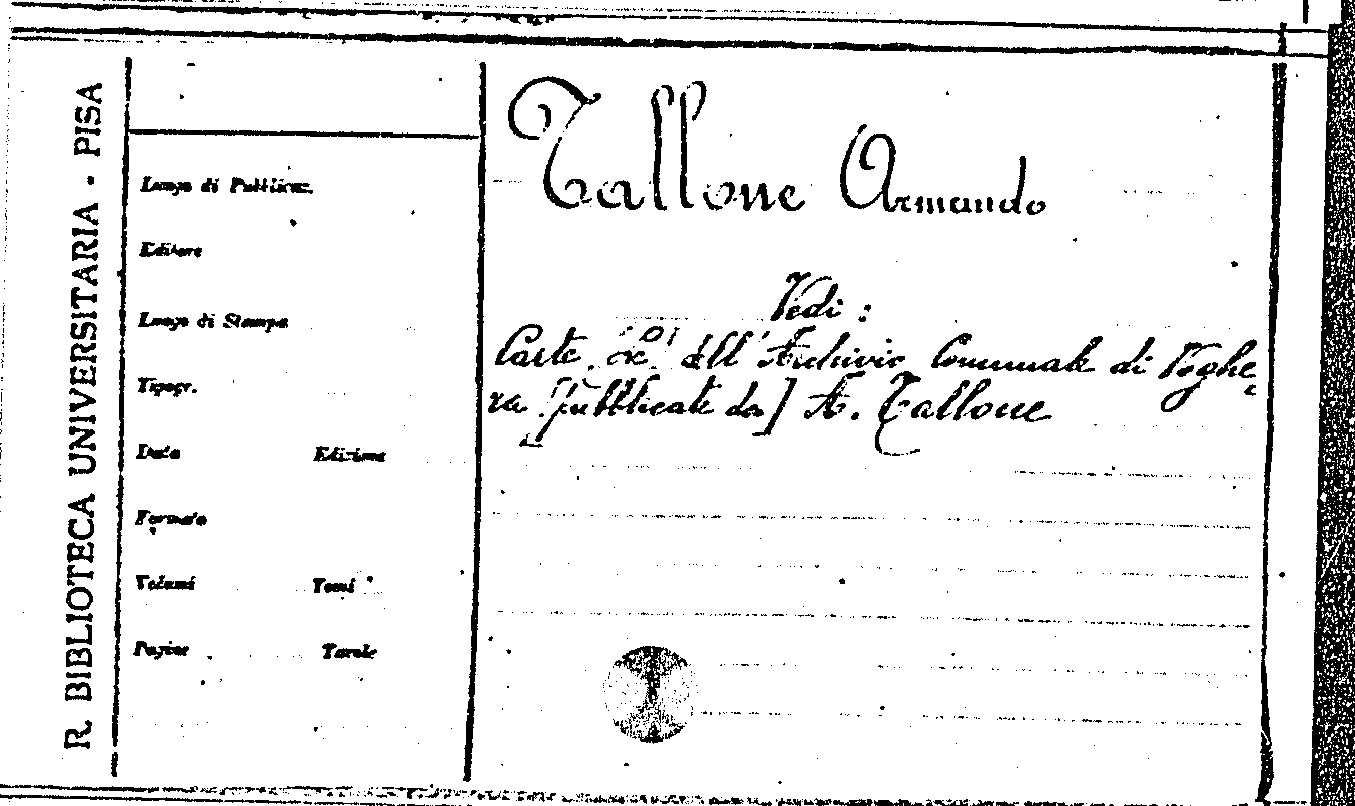 R. BIBLIOTECA UNIVERSITARIA - PISA
Luogo di Pubblicaz.
Editore
Luogo di Stampa
Tipogr.
Data Edizione
Formato
Volumi Tomi
Pagine Tavole
Tallone Armando
Vedi :
Carte dell'Archivio Comunale di Voghe-
ra [pubblicate da] A. Tallone